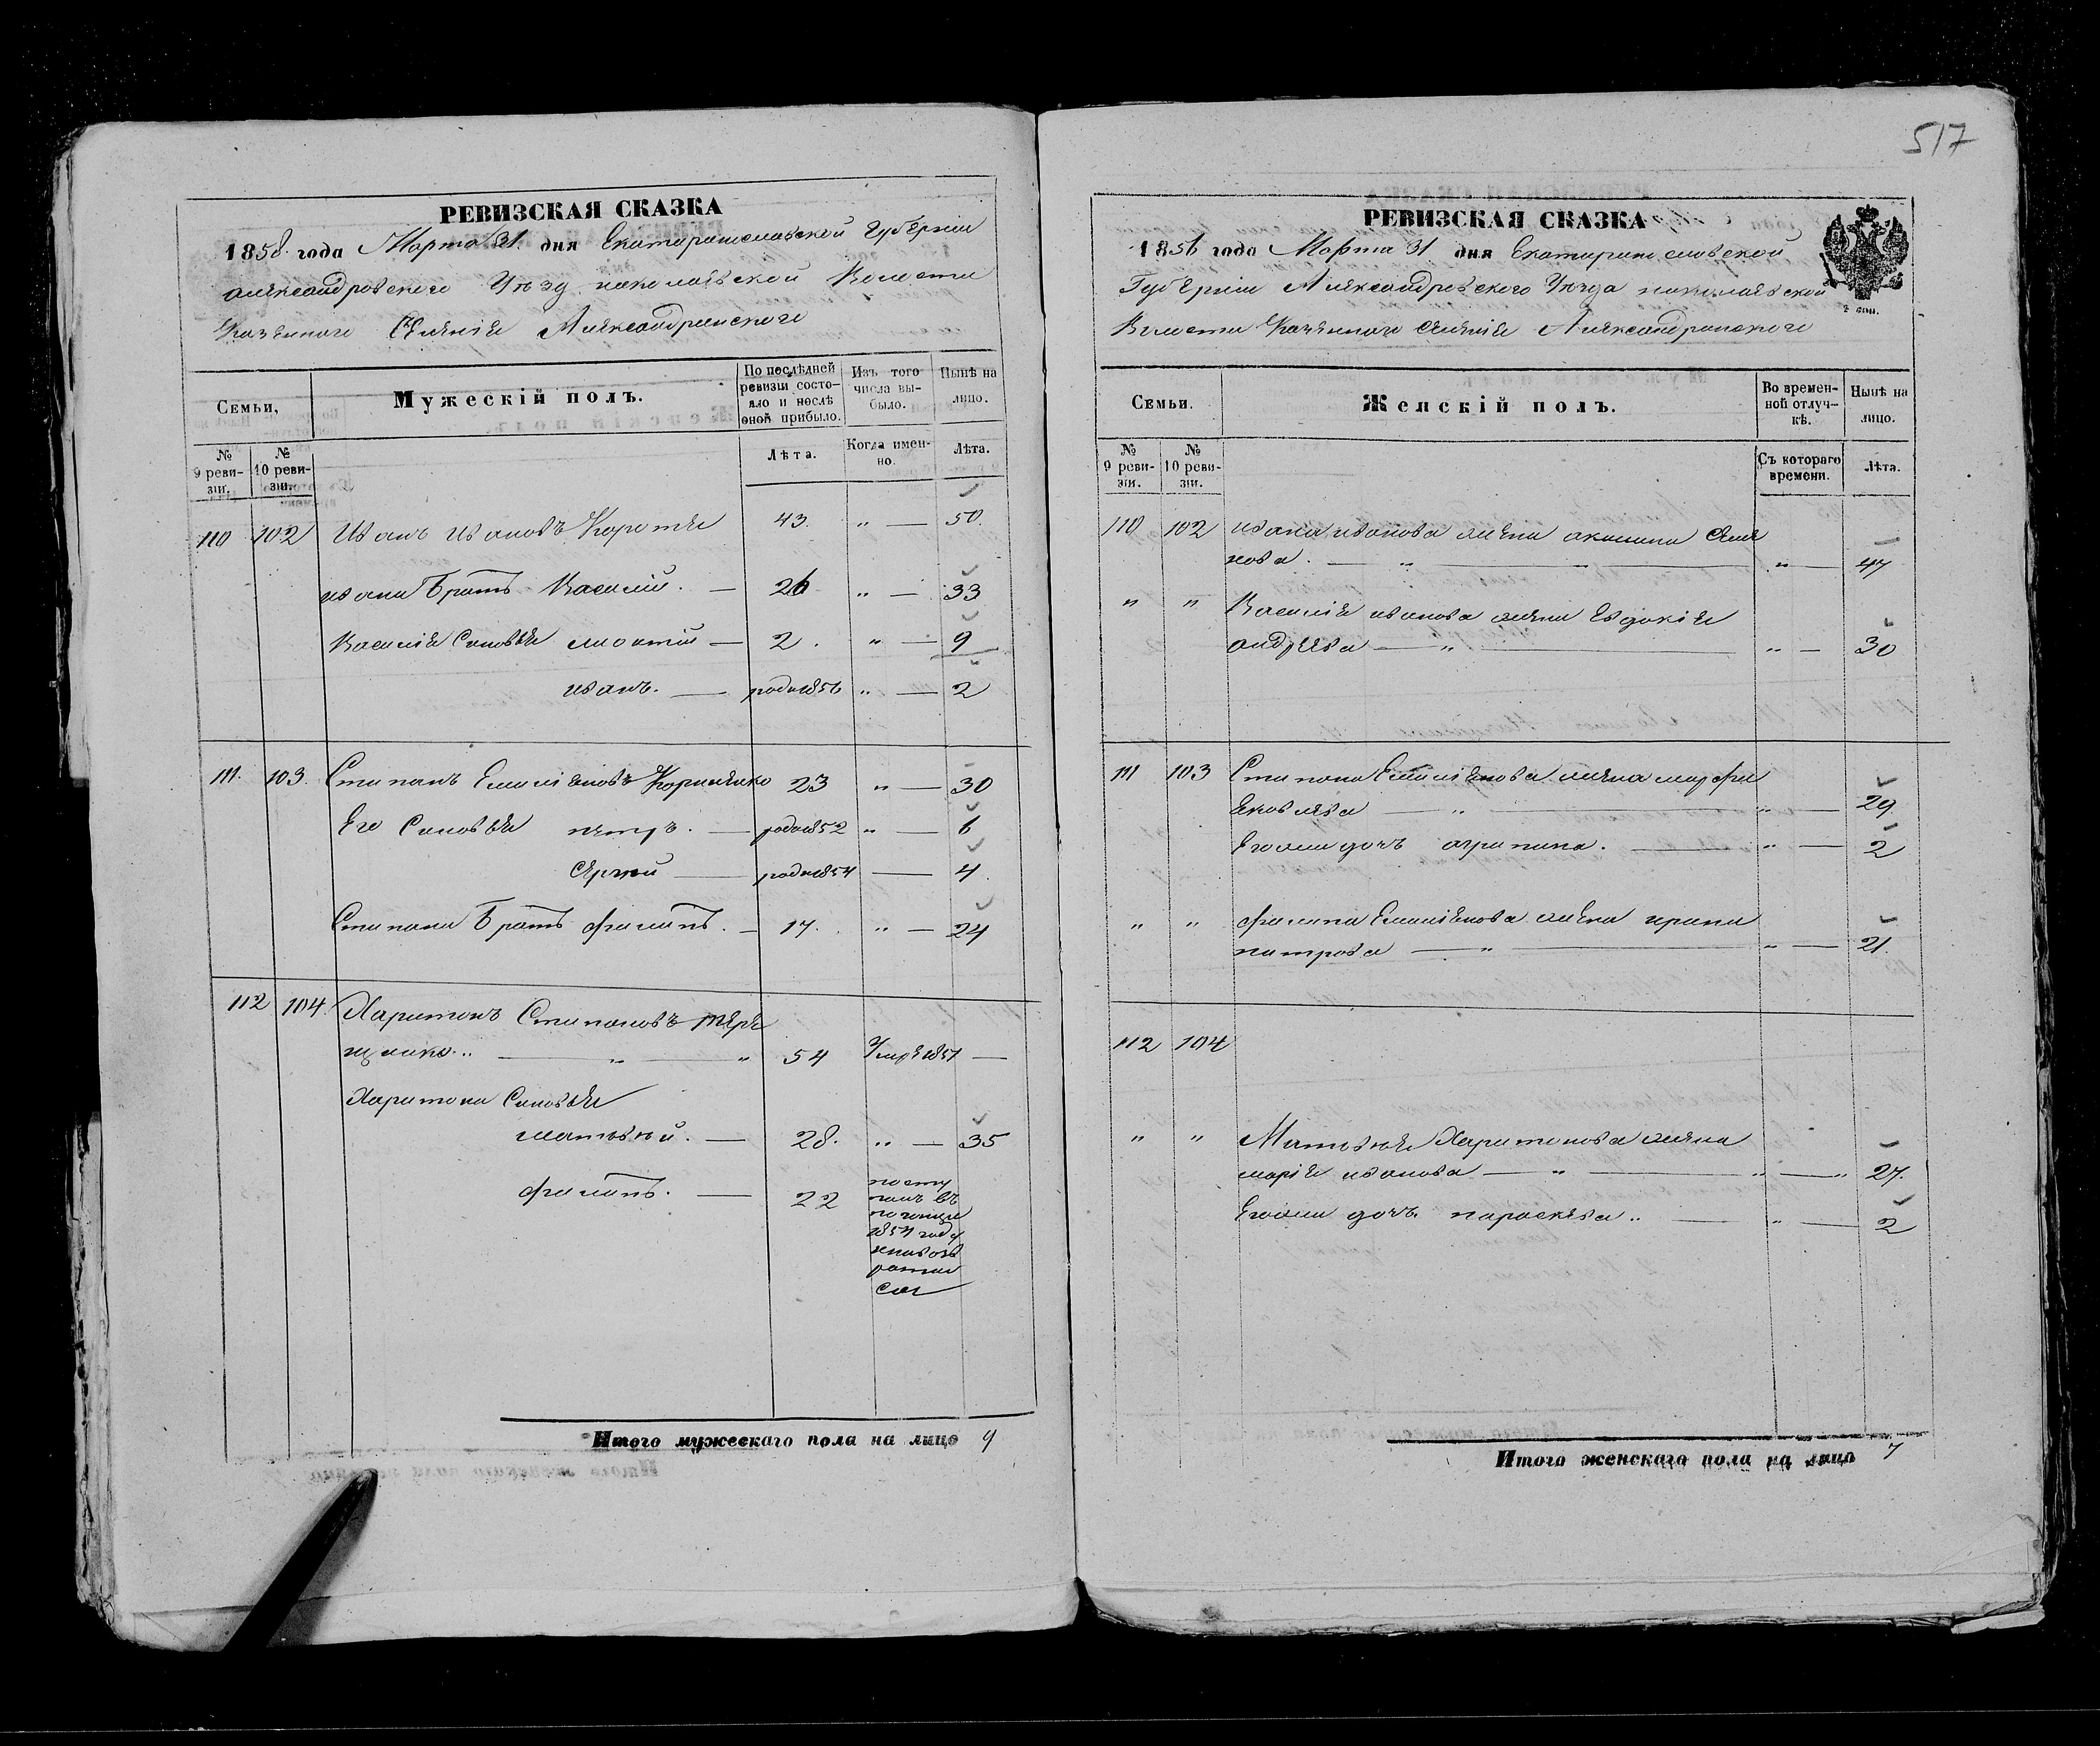 517
РЕВИЗСКАЯ СКАЗКА
1858 года Марта 31 дня Екатеринославской Губернии
Александровского Уезду николаевской Волости
Казенного Селения Александринского
Семьи,
Мужескій полъ.
По послѣдней ревизіи состояло и послѣ оной прибыло.
Изъ того числа выбыло.
Нынѣ на лицо.
№ 9 ревизіи.
№ 10 ревизіи.
Лѣта.
Когда именно.
Лѣта.
110 102 Иванъ Ивановъ Коротки 43. „ — 50.
ивана Братъ Василій. — 26 „ — 33
Василія Сыновья — 2. „ — 9
иванъ. — родил 1856 „ — 2
111. 103. Степанъ Емилiяновъ 23 „ — 30
Его Сыновья петръ. — родил 1852 „ — 6
Сергий — родил 1854 — 4.
Степана Братъ филипъ. — 17. „ — 24
112 104. Харитонъ Степановъ тере
щенко.. — „ — „ 54 Умре 1857 —
Харитона Сыновья
матвѣй. — 28. „ — 35
филипъ. — 22 посту
палъ въ
погонци
1854 году
невозв
ратил
ся
Итого мужескаго пола на лицо 9
РЕВИЗСКАЯ СКАЗКА
1858 года Марта 31 дня Екатеринославской
Губерніи Александровского Уезда николаевской
Волости Казенного селения Александринского
2 коп.
Семьи.
Женскій полъ.
Во временной отлучкѣ.
Нынѣ на лицо.
№ 9 ревизіи.
№ 10 ревизіи.
Съ котораго времени.
Лѣта.
110 102 ивана иванова жена акилина Семе
нова. — „ — „ — „ — 47
„ „ Василія иванова жена Евдокія
андреева — „ — „ — 30
111 103 Степана Емилiянова жена марфа
Яковлева — „ — „ — 29.
Егожи дочъ агрипина. — „ — 2
„ „ филипа Емилiянова жена ирина
петрова — „ — „ — 21.
112 104
„ „ Матвѣя Харитонова жена
марія иванова — „ — „ — „ 27.
Егожи дочъ парасковя.. — „ — 2
Итого женскаго пола на лицо 7